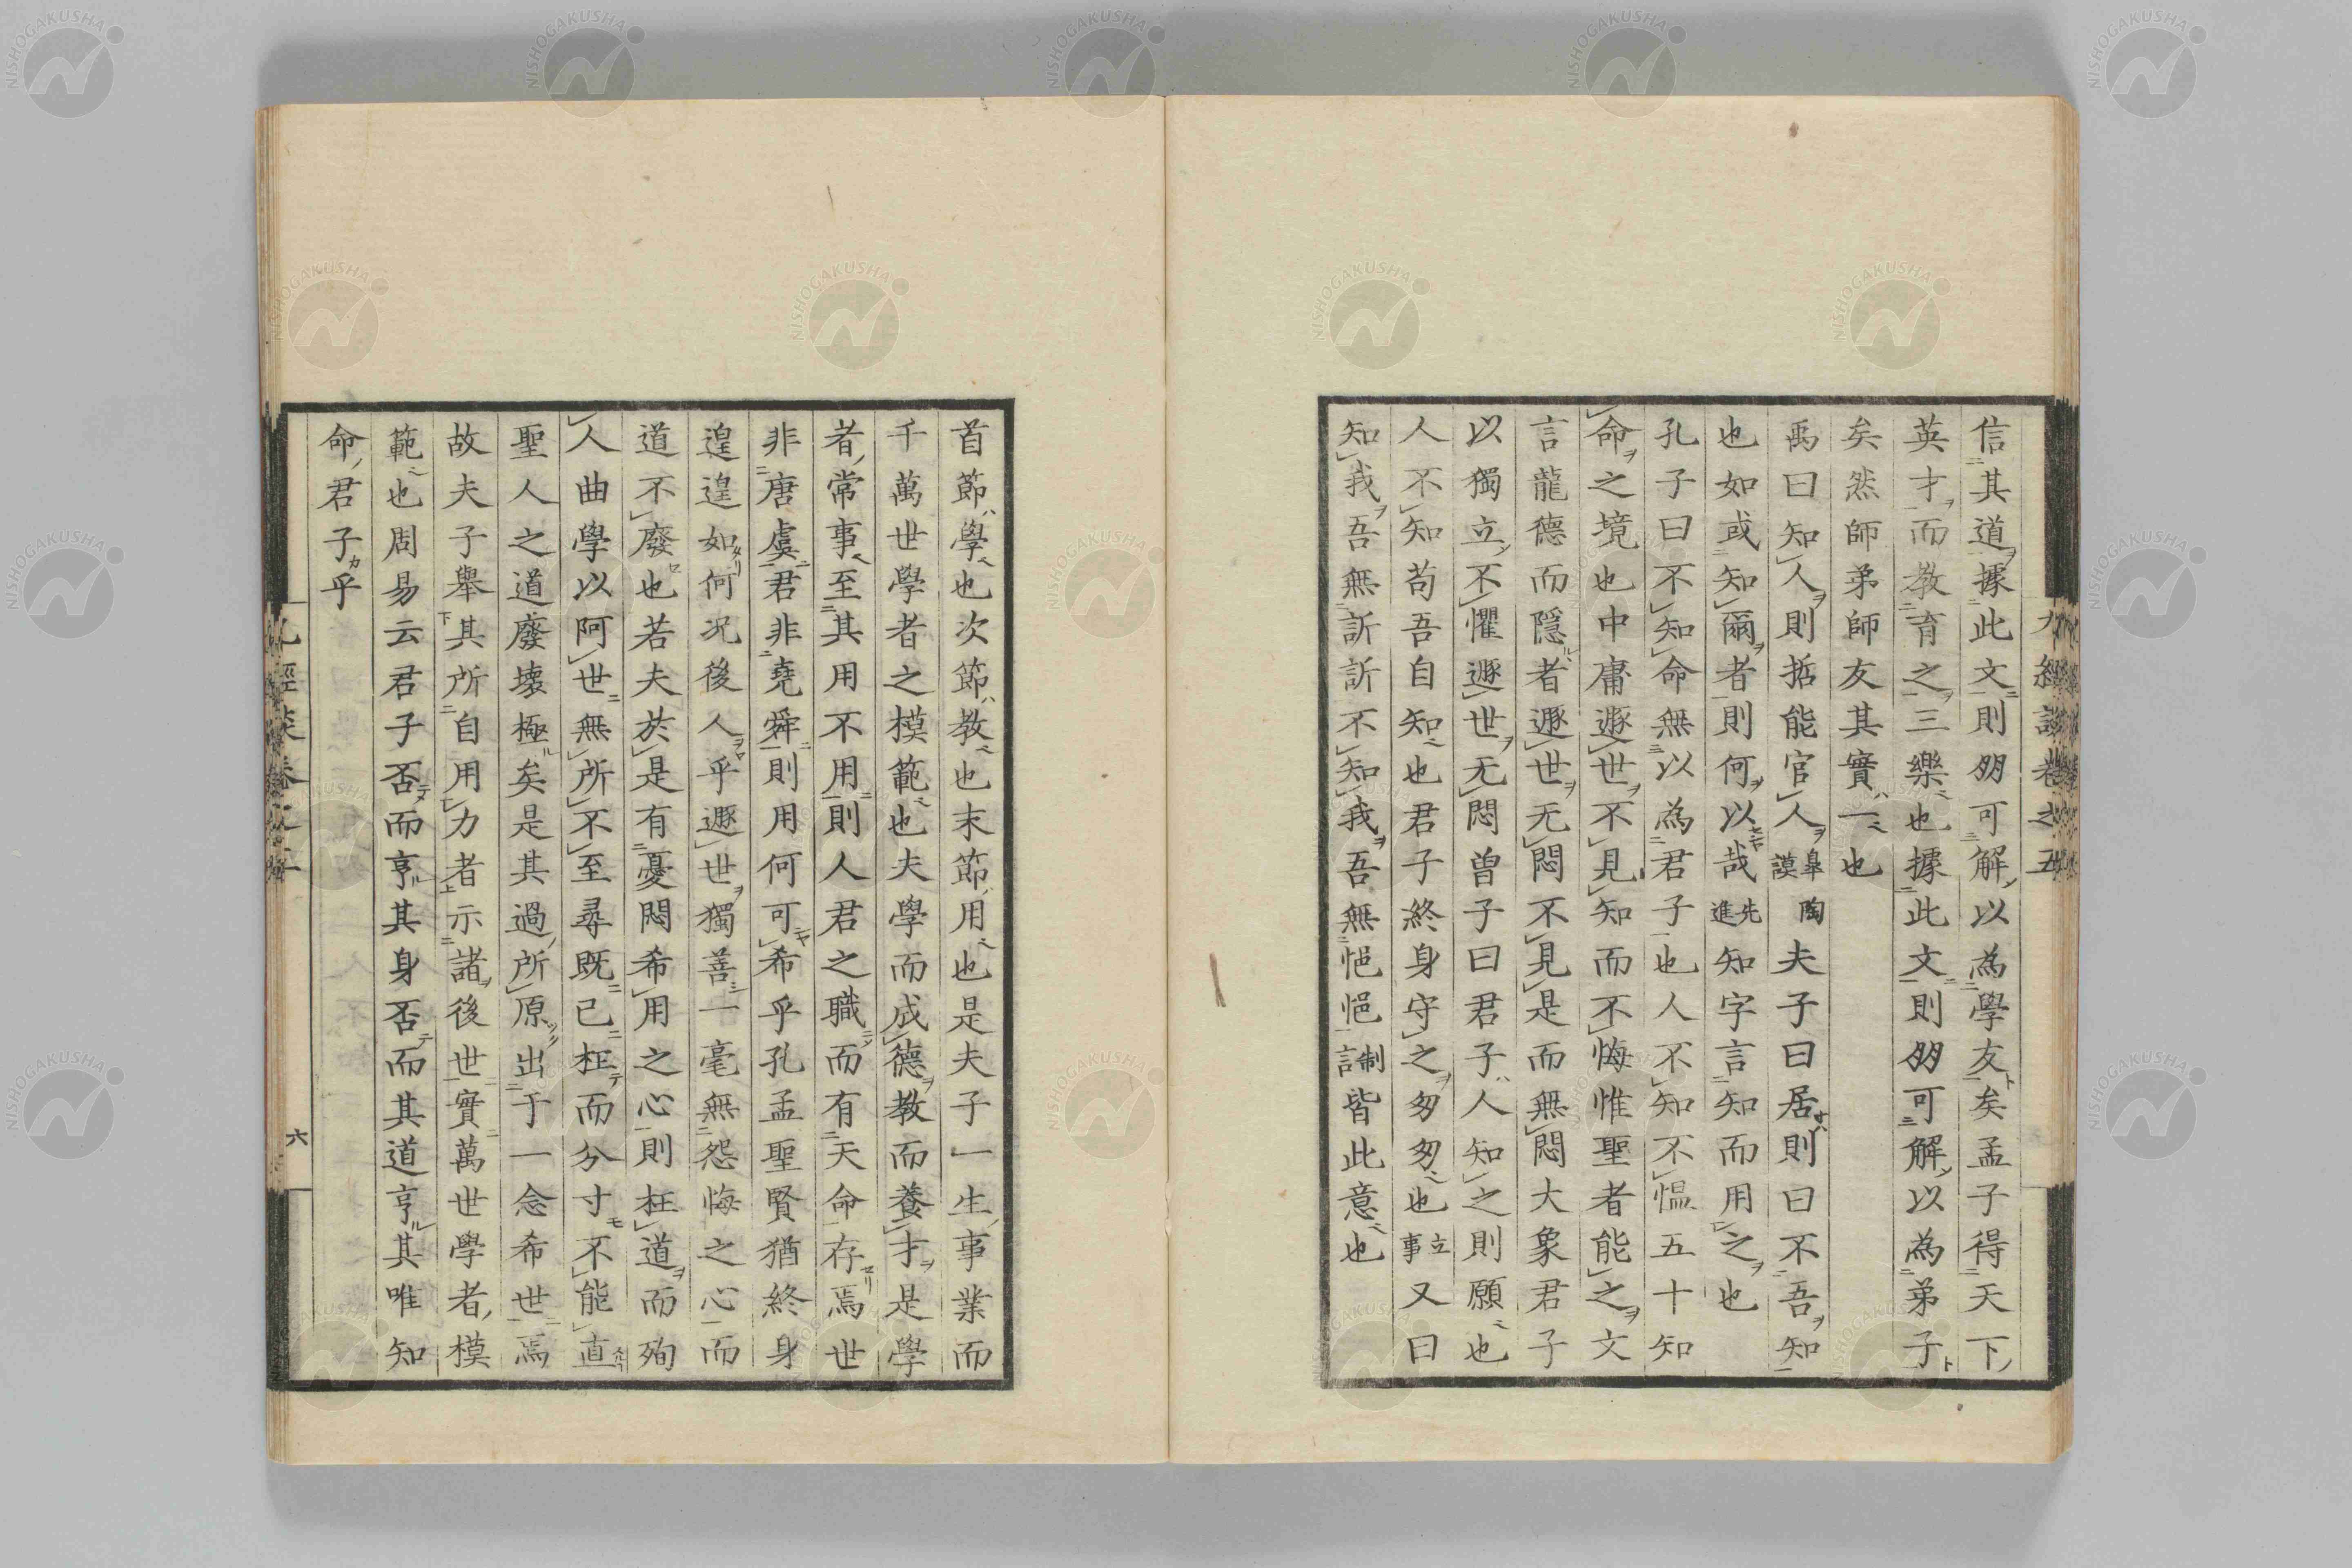 信其道據此文則明可解以為學友矣孟子得天下
英才而教育之三樂也據此文則明可解以為弟子
矣然師弟師友其實一也
禹曰知人則哲能官人皐陶謨夫子曰居則曰不吾知
也如或知爾者則何以哉先進知字言知而用之也
孔子曰不知命無以為君子也人不知不慍五十知
命之境也中庸遯世不見知而不悔惟聖者能之文
言龍德而隱者遯世无悶不見是而無悶大象君子
以獨立不懼遯世无悶曾子曰君子人知之則願也
人不知苟吾自知也君子終身守之勿勿也立事又曰
知我吾無訢訢不知我吾無悒悒制言皆此意也
九經談卷之五
首節學也次節教也末節用也是夫子一生事業而
千萬世學者之模範也夫學而成德教而養才是學
者常事至其用不用則人君之職而有天命存焉世
非唐虞君非堯舜則用何可希乎孔孟聖賢猶終身
遑遑如何況後人乎遯世獨善一毫無怨悔之心而
道不廢也若夫於是有憂悶希用之心則枉道而殉
人曲學以阿世無所不至尋既已枉而分寸不能直
聖人之道廢壞極矣是其過所原出于一念希世焉
故夫子舉其所自用力者示諸後世實萬世學者模
範也周易云君子否而亨其身否而其道亨其唯知
命君子乎
六